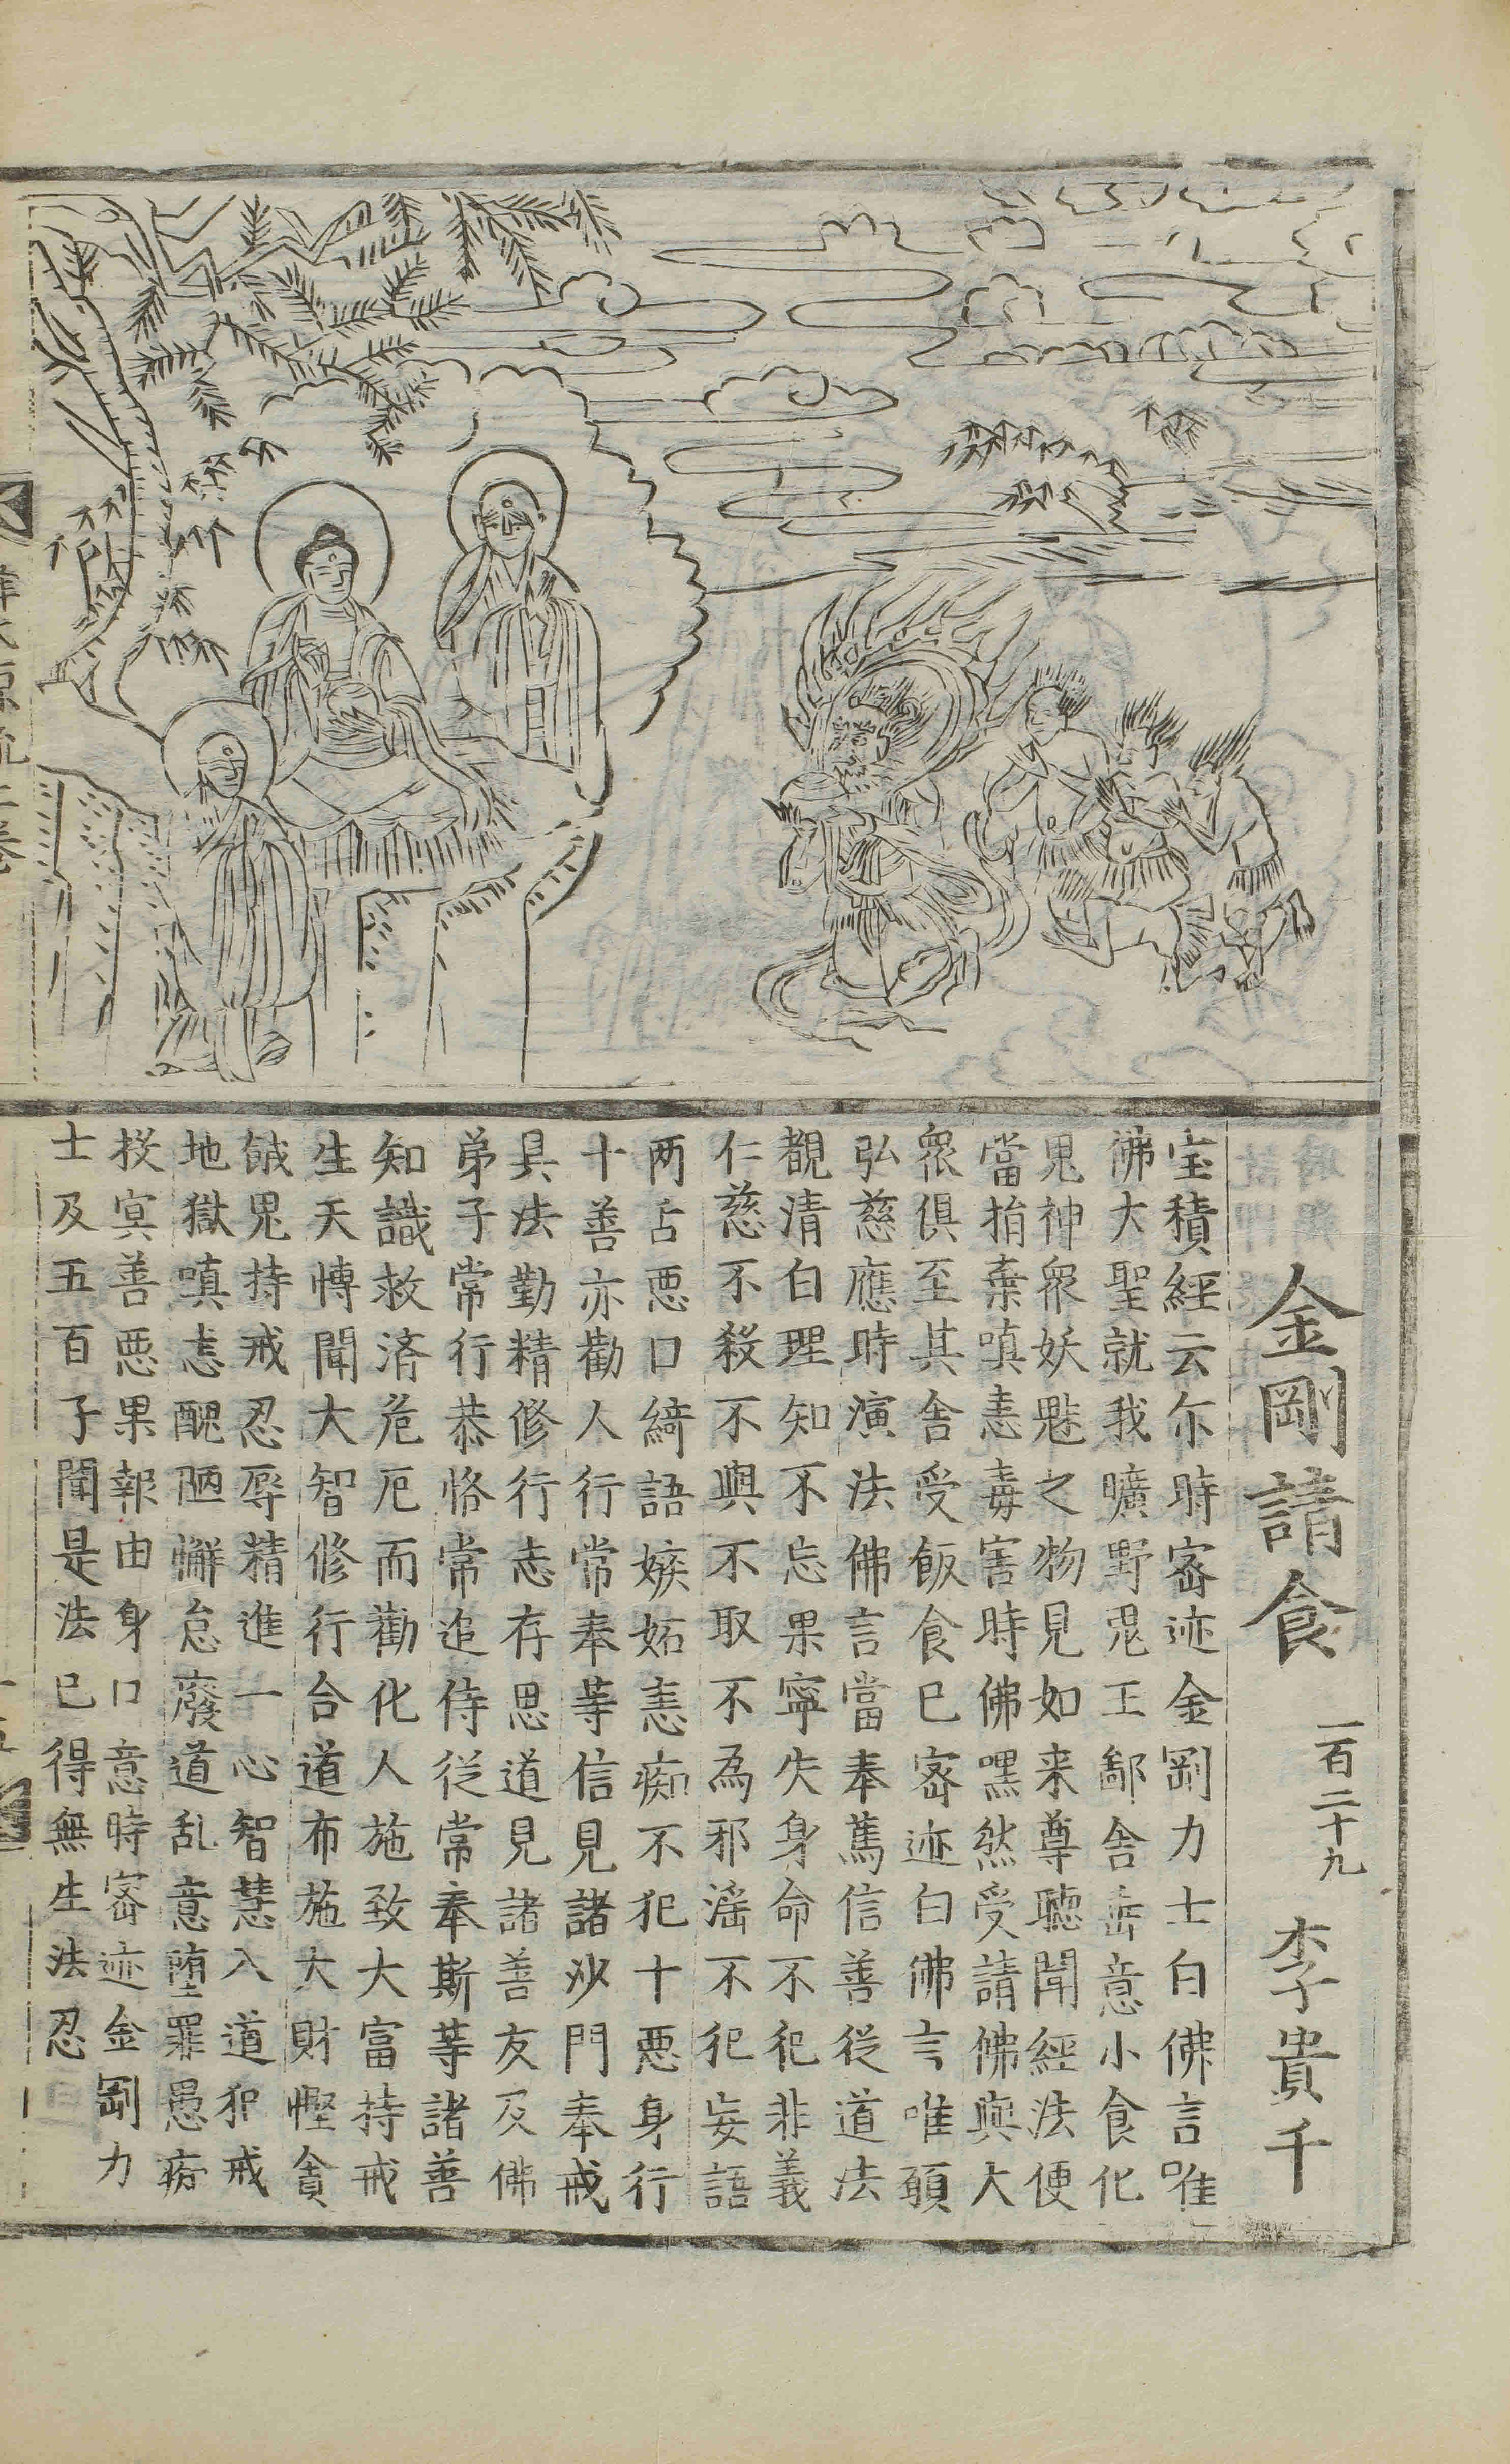 金剛請食 一百二十九 李貴千
宝積經云尓時宻迹金剛力士白佛言唯
佛大聖就我曠野鬼王鄙舍垂意小食化
鬼神衆妖魅之物見如来尊聽聞經法便
當捐棄嗔恚毒害時佛嘿然受請佛與大
衆俱至其舍受飯食已宻迹白佛言唯願
弘慈應時演法佛言當奉篤信善從道法
覩清白理知不忘果寧失身命不犯非義
仁慈不殺不與不取不為邪滛不犯妄語
两舌悪口綺語嫉妬恚痴不犯十悪身行
十善亦勸人行常奉等信見諸沙門奉戒
具法勤精修行志存思道見諸善友及佛
弟子常行恭恪常追侍從常奉斯等諸善
知識救済危厄而勸化人施致大富持戒
生天慱聞大智修行合道布施大財慳貪
餓鬼持戒忍辱精進一心智慧入道犯戒
地獄嗔恚醜陋懈怠廢道乱意堕罪愚痴
投冥善悪果報由身口意時宻迹金剛力
士及五百子聞是法已得無生法忍